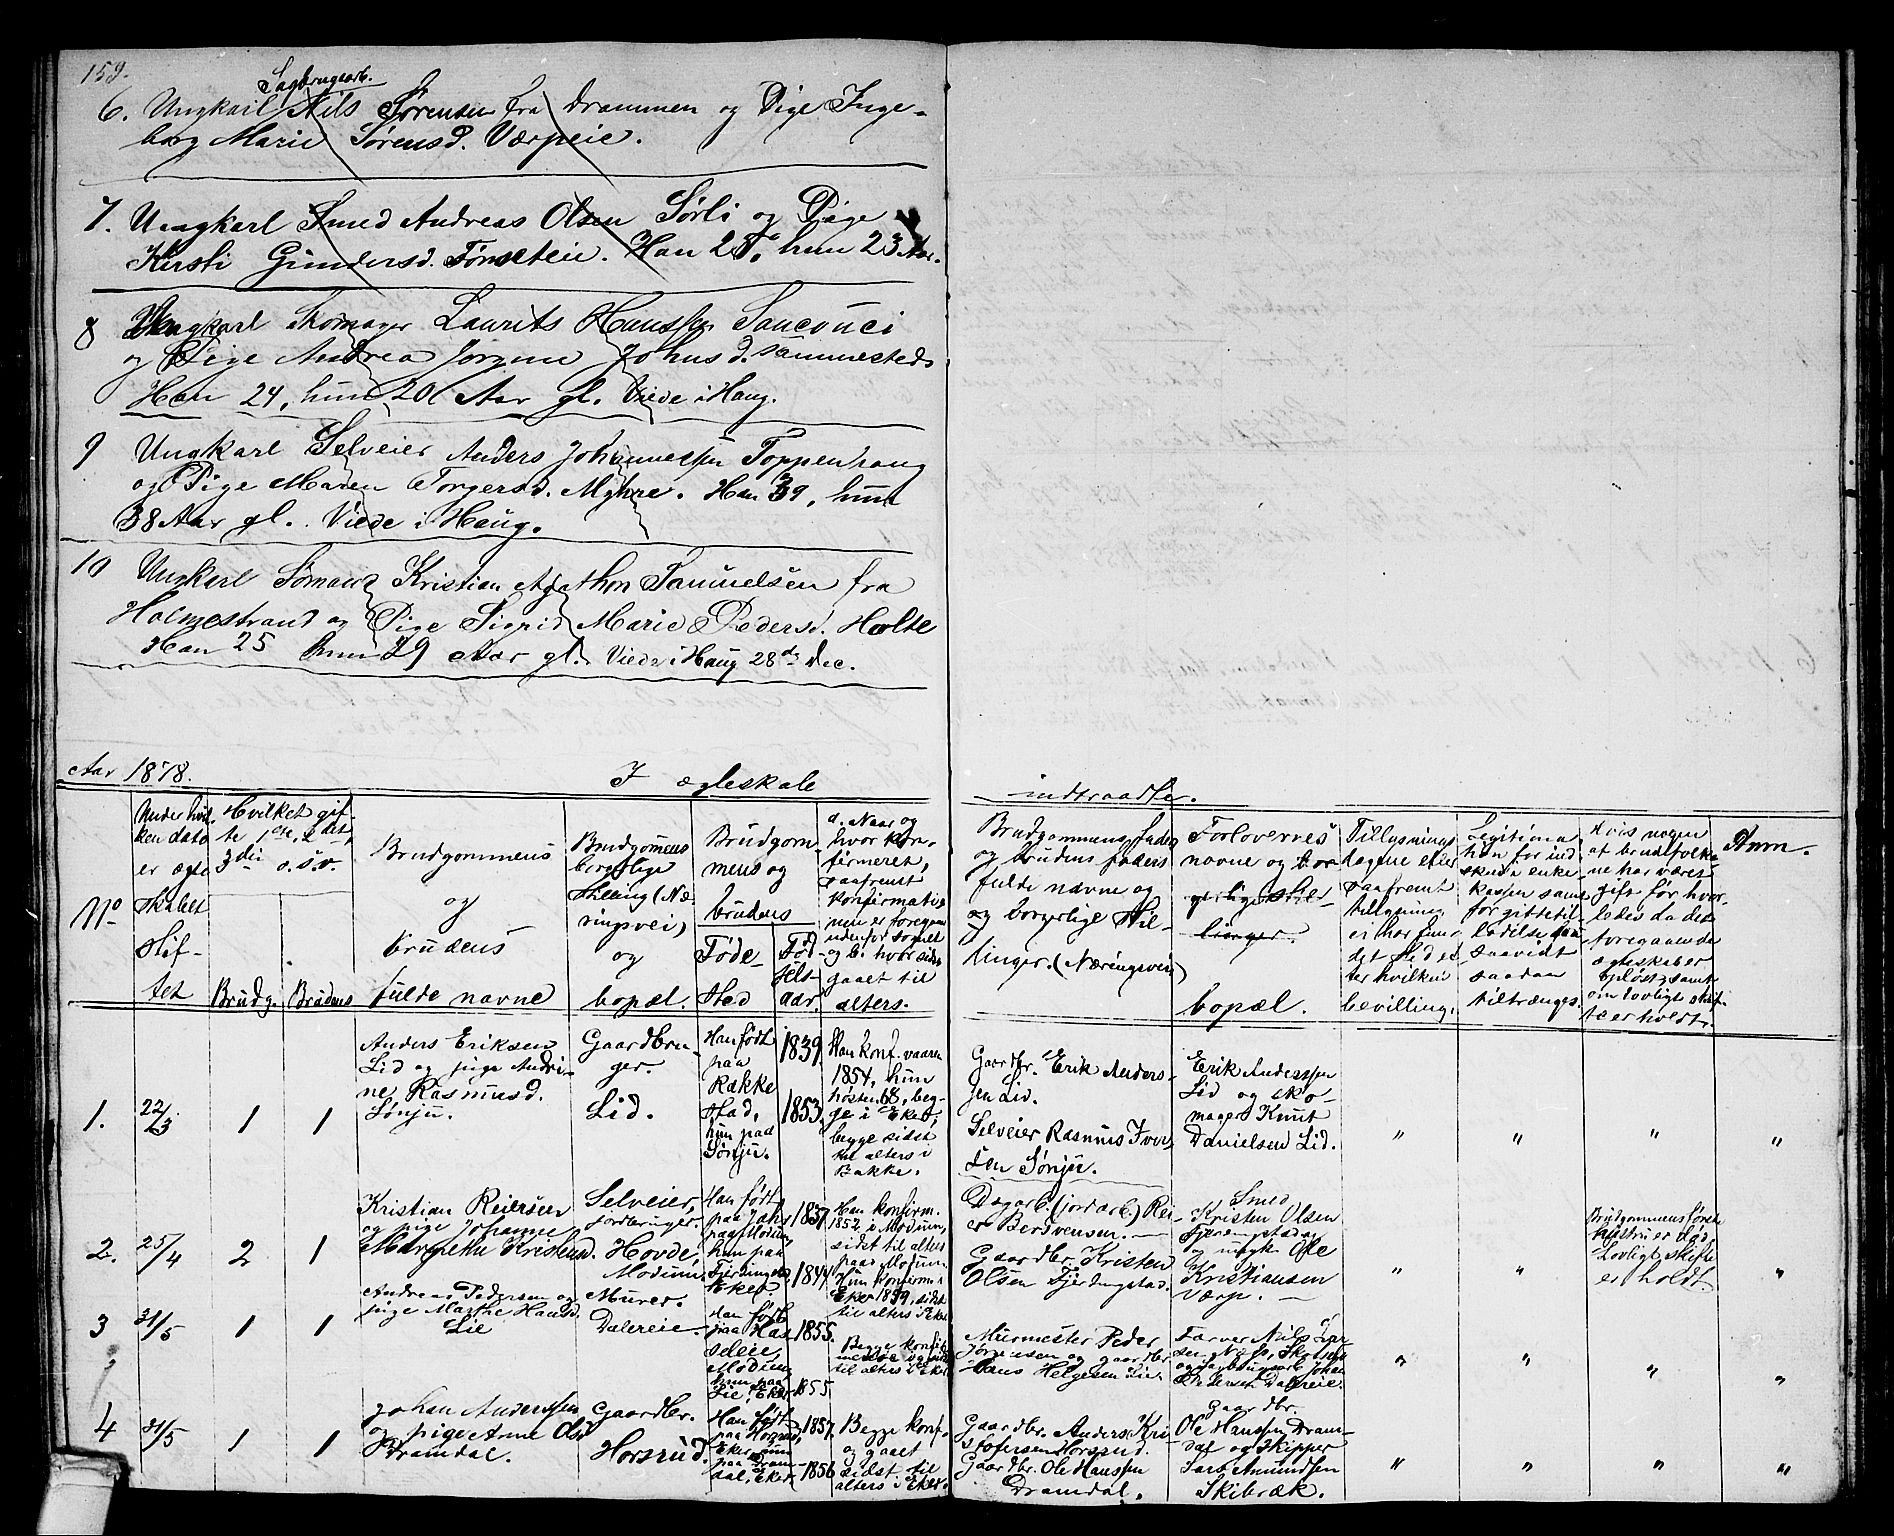 159.
Sagbrugsarb.
6. Ungkarl Nils Sørensen fra Drammen og Pige Inge-
borg Marie Sørensd. Værpeie.
7. Ungkarl Smed Andreas Olsen Sørli og Pige
Kersti Gundersd. Han 25, hun 23 Aar.
8 Ungkarl Skomager Laurits Hanssen Sancouci
og Pige Andrea Jørgine Johnsd. sammesteds
Han 24, hun 20 Aar gl. Viede i Haug.
9 Ungkarl Selveier Anders Johannessen Toppenhaug
og Pige Maren Torgersd. Myhre. Han 39, hun
38 Aar gl. Viede i Haug.
10 Ungkarl Sømand Kristian Agathon Samuelsen fra
Holmestrand og Pige Sigrid Marie Pedersd. Holte
Han 25 hun 29 Aar gl. Viede i Haug 28de Dec.
Aar 1878. I ægteskab
indtraadte.
No
Under hvil-
ken dato
er ægte
skabet
stif-
tet
Hvilket gif-
te 1ste, 2det,
3die o.s.v.
Brudg. Brudens
Brudgommens
og
brudens
fulde navne
Brudgommens
borgerlige
stilling (Næ-
ringsvei)
og
bopæl.
Brudgom-
mens og
brudens
Føde-
sted
Fød-
sels-
aar.
a. Naar og
hvor kon-
firmeret,
saafremt
konfirmatio-
nen er foregaaet
udenfor sognet
og b. hvor sidst
gaaet til
alters.
Brudgommens faders
og brudens faders
fulde navne og
og borgerlige stil-
linger. (Næringsvei)
Forlovernes
navne og bor-
gerlige stil-
linger.
bopæl.
Tillysnings-
dagene eller
saafremt
tillysning
ei har fun-
det sted ef-
ter hvilken
bevilling.
Legitima-
tion for ind-
skud i enke-
kassen samt
for giftetil-
ladelse
saavidt
saadan
tiltrænges.
Hvis nogen
af brudefolke-
ne har været
gift før, hvor-
ledes da det
foregaaende
ægteskab er
opløst, samt
om lovligt skif-
te er holdt.
Anm.
1. 22/3 1 1
Anders Eriksen
Lid og pige Andri-
ne Rasmusd.
Sønju.
Gaardbru-
ger.
Lid.
Han født
paa
Række
stad,
hun paa
Sønju.
1839.
1853.
Han konf. vaaren
1854, hun
høsten 68, beg-
ge i Eker,
begge sidst
til alters i
Bakke.
Gaardbr. Erik Anders-
sen Lid.
Selveier Rasmus Iver-
sen Sønju.
Erik Anderssen
Lid og sko-
mager Knut
Danielsen Lid.
" " " "
2. 25/4 2 1
Kristian Reiersen
og pige Johanne
Margrethe Kristensd.
Selveier,
jordbruger.
Hovde,
Modum.
Han født
paa
paa Modum,
hun paa
Fjerdingstad
Eker
1837.
1844
Han konfirm.
1852 i Modum,
sidst til alters
paa Modum.
Hun konfirm. i
Eker 1859, sidst
til alters i Eker
Dagarb. (jordarb.) Rei-
er Bertvensen. —
Gaardbr. Kristen
Olsen Fjerdingstad.
Smed
Kristen Olsen
Fjerdingstad
og ungk. Ole
Kristiansen
Værp. —
" "
Brudgommens første
hustru er død.
Lovligt skifte
er holdt.
"
3 31/5 1 1
Andreas Pedersen og
pige Marthe Hansd.
Lie
Murer.
Dalereie.
Han født
paa
Modum,
hun paa
Lie, Eker
1855.
1855
Begge konfir-
merede og sidst
til alters i Eker
Murmester Peder
Jørgensen og gaardbr.
Hans Helgesen Lie.
Farver Nils
og sagbrugsarb. Johan
Pedersen Dalereie.
" " " "
4 31/5 1 1
Johan Anderssen
og pige Anne Olsd.
Dramdal.
Gaardbr.
Horsrud.
Han født
paa Horsrud,
Eker, hun
paa Dram-
dal, Eker
1857.
1856
Begge konf.
og gaaet
sidst til
alters i Eker.
Gaardbr. Anders Kri-
stofersen Horsrud.
Gaardbr. Ole Hanssen
Dramdal.
Gaardbr.
Ole Hanssen Dram-
dal og skipper
Amundsen
Skibræk.
" " " "